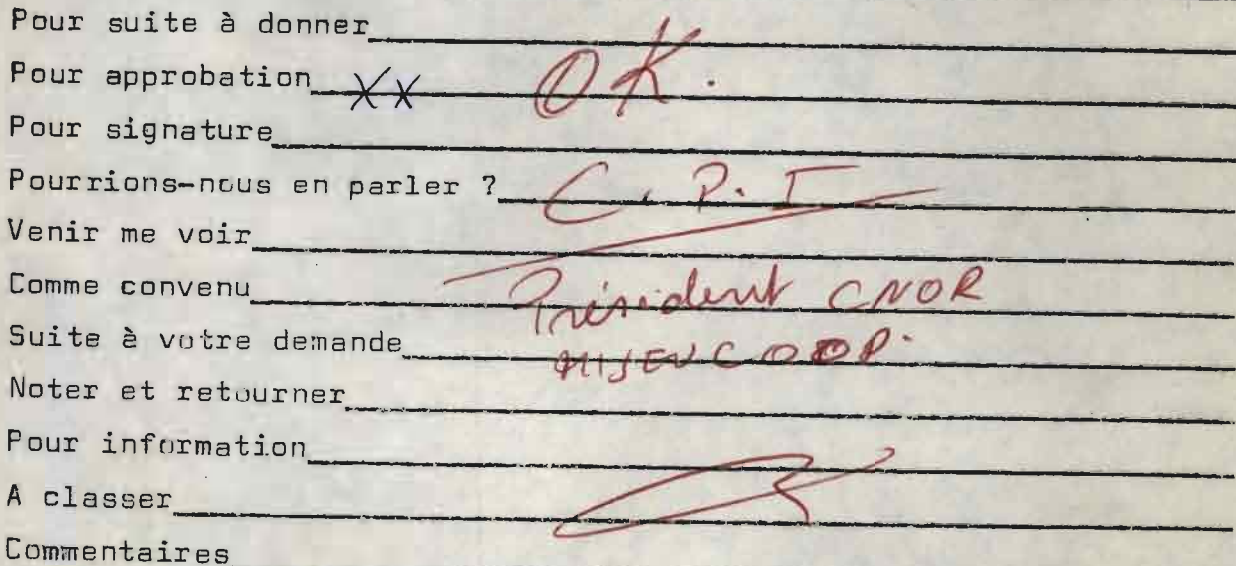 Pour suite à donner
Pour approbation XX OK.
Pour signature
Pourrions-nous en parler ? C.P.I
Venir me voir
Comme convenu Président CNOR
Suite à votre demande MIJEUCOOP.
Noter et retourner
Pour information
A classer
Commentaires